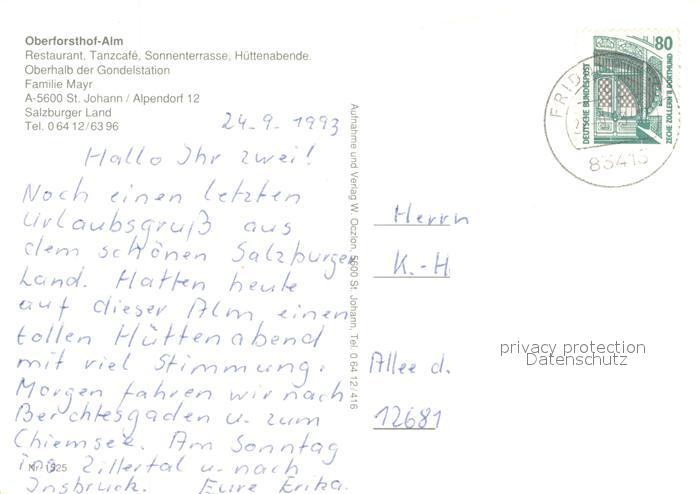 Oberforsthof-Alm
Restaurant, Tanzcafé, Sonnenterrasse, Hüttenabende.
Oberhalb der Gondelstation
Familie Mayr
A-5600 St. Johann / Alpendorf 12
Salzburger Land
Tel. 0 64 12 / 63 96
24.9.1993
Hallo Ihr zwei!
Noch einen letzten
Urlaubsgruß aus
dem schönen Salzburger
Land. Hatten heute
auf dieser Alm einen
tollen Hüttenabend
mit viel Stimmung.
Morgen fahren wir nach
Berchtesgaden u. zum
Chiemsee. Am Sonntag
ins Zillertal u. nach
Innsbruck. Eure Erika.
Nr. 1525
Aufnahme und Verlag W. Oczlon, 5600 St. Johann, Tel. 0 64 12 / 416
80
DEUTSCHE BUNDESPOST
ZECHE ZOLLERN II, DORTMUND
FRID
83413
Herrn
K.-H
Allee d.
12681
privacy protection
Datenschutz